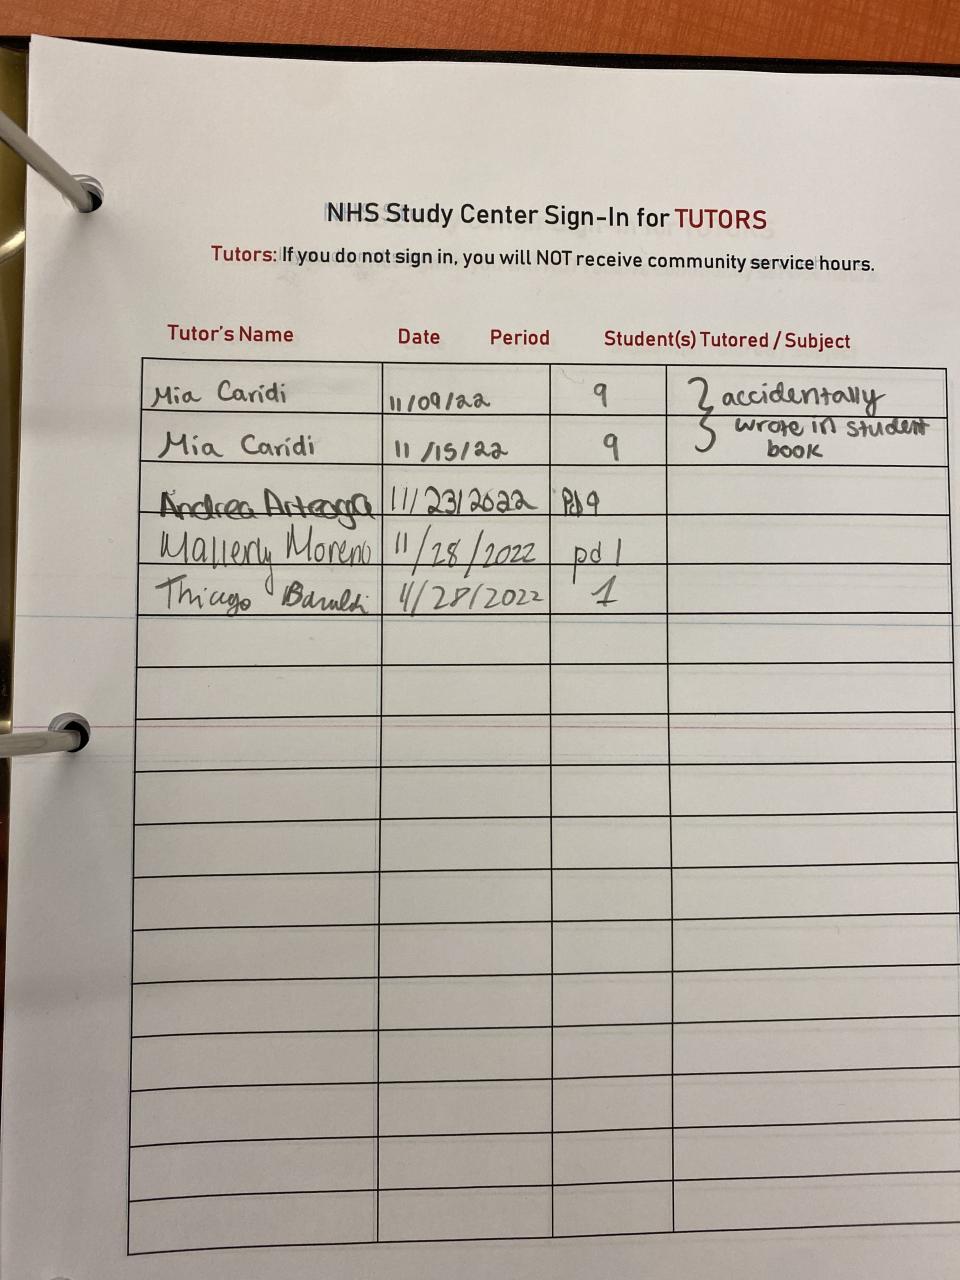 NHS Study Center Sign-In for TUTORS
Tutors: If you do not sign in, you will NOT receive community service hours.
Tutor's Name Date Period Student(s) Tutored / Subject
Mia Caridi 11/09/22 9 } accidentally
wrote in student
Mia Caridi 11/15/22 9 book
Andrea Arteaga 11/23/2022 Pd 9
Mallerly Moreno 11/28/2022 pd 1
Thiago Baruldi 11/28/2022 1